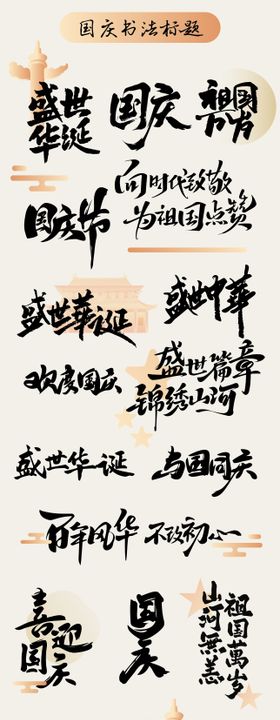 国庆书法标题
盛世
华诞
国庆
祖国
万岁
国庆节
向时代致敬
为祖国点赞
盛世華诞
盛世中華
欢度国庆
盛世篇章
锦绣山河
盛世华诞
与国同庆
百年风华 不改初心
喜迎
国庆
国庆
祖国萬岁
山河無恙